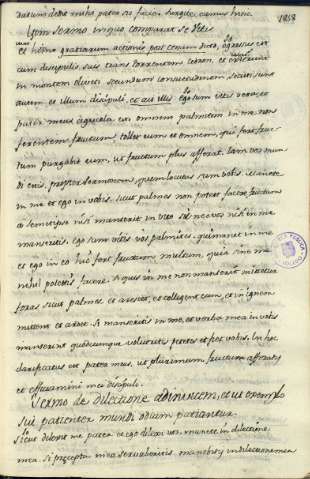 mandatum dedit mihi pater sic facio. Surgite, eamus hinc.
Sermo in quo comparat se Viti
et hymno gratiarum actionis post cenam dicto, egressus est
cum discipulis suis trans torrentem Cedron, et
in montem oliveti secundum consuetudinem, secuti sunt
autem et illum discipuli, et ait illis Ego sum vitis vera, et
pater meus agricola est omnem palmitem in me non
ferentem fructum tollet eum et omnem, qui fert fruc-
tum purgabit eum, ut fructum plus afferat. Iam vos mun-
di estis, propter sermonem, quem locutus sum vobis, manete
in me et ego in vobis. sicut palmes non potest facere fructum
a semetipso nisi manserit in vite sic nec vos nisi in me
manseritis. Ego sum vitis vos palmites, qui manet in me
et ego in eo hic fert fructum multum, quia sine me
nihil potestis facere. Si quis in me non manserit mittetur
foras sicut palmes, et arescet, et colligent eum, et in ignem
mittent et ardet. Si manseritis in me, et verba mea in vobis
manserint quodcumque volueritis petetis et fiet vobis. In hoc
clarificatus est pater meus, ut plurimum fructum afferatis
et efficiamini mei discipuli.
Sermo de dilectione ad invicem, et ut exemplo
sui patienter mundi odium patiantur.
Sicut dilexit me pater et ego dilexi vos, manete in dilectione
mea. Si præcepta mea servaveritis manebitis in dilectione mea